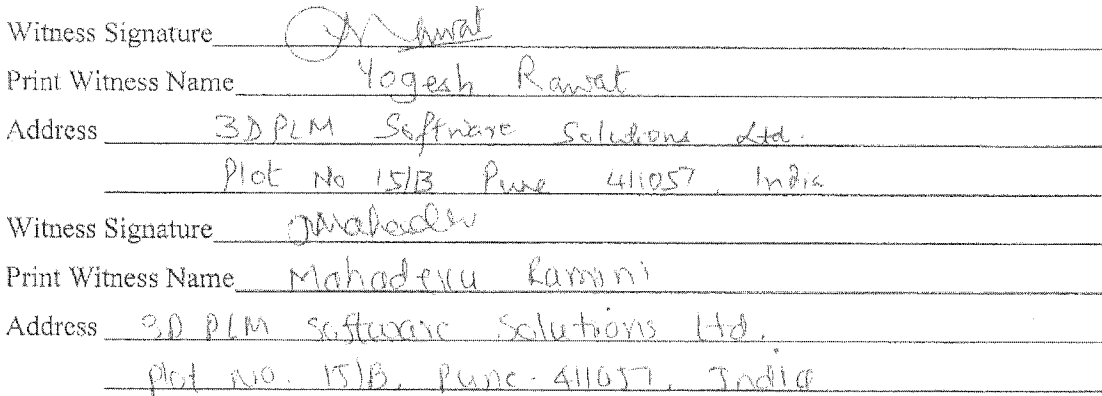 Witness Signature Rawat
Print Witness Name Yogesh Rawat
Address 3DPLM Software Solutions Ltd.
Plot No 15/B Pune 411057, India
Witness Signature Mahadev
Print Witness Name Mahadevu Ramini
Address 3D PLM Software Solutions Ltd.
Plot No. 15/B, Pune-411057, India